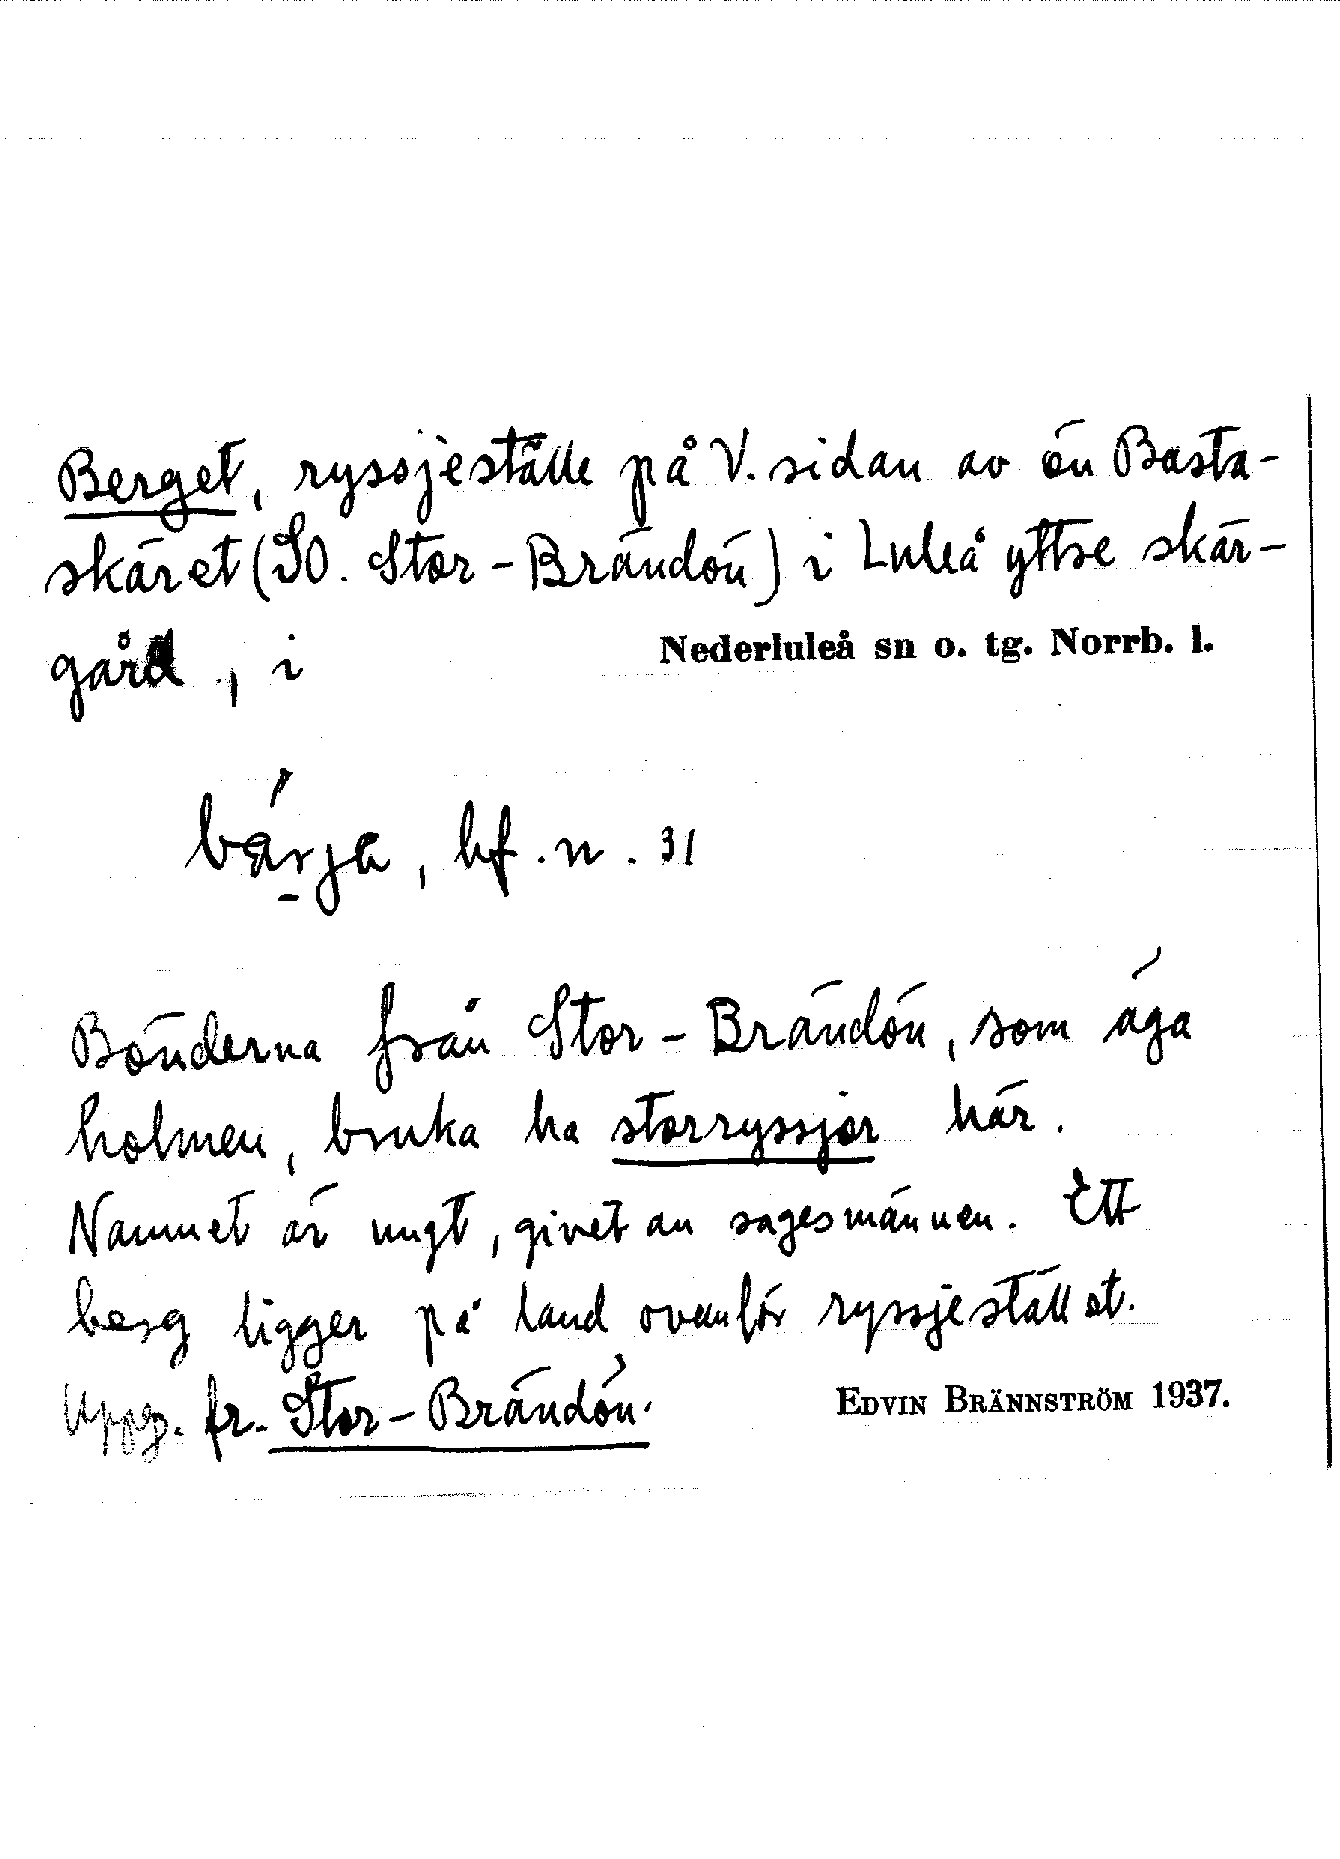 Berget, ryssjeställe på V. sidan av ön Basta-
skäret (SO. Stor-Brändön) i Luleå yttre skär-
gård, i Nederluleå sn o. tg. Norrb. l.
bf. n. 31
Bönderna från Stor-Brändön, som äga
holmen, bruka ha storryssjor här.
Namnet är ungt, givet av sagesmännen. Ett
berg ligger på land ovanför ryssjestället.
Uppg. fr. Stor-Brändön. EDVIN BRÄNNSTRÖM 1937.